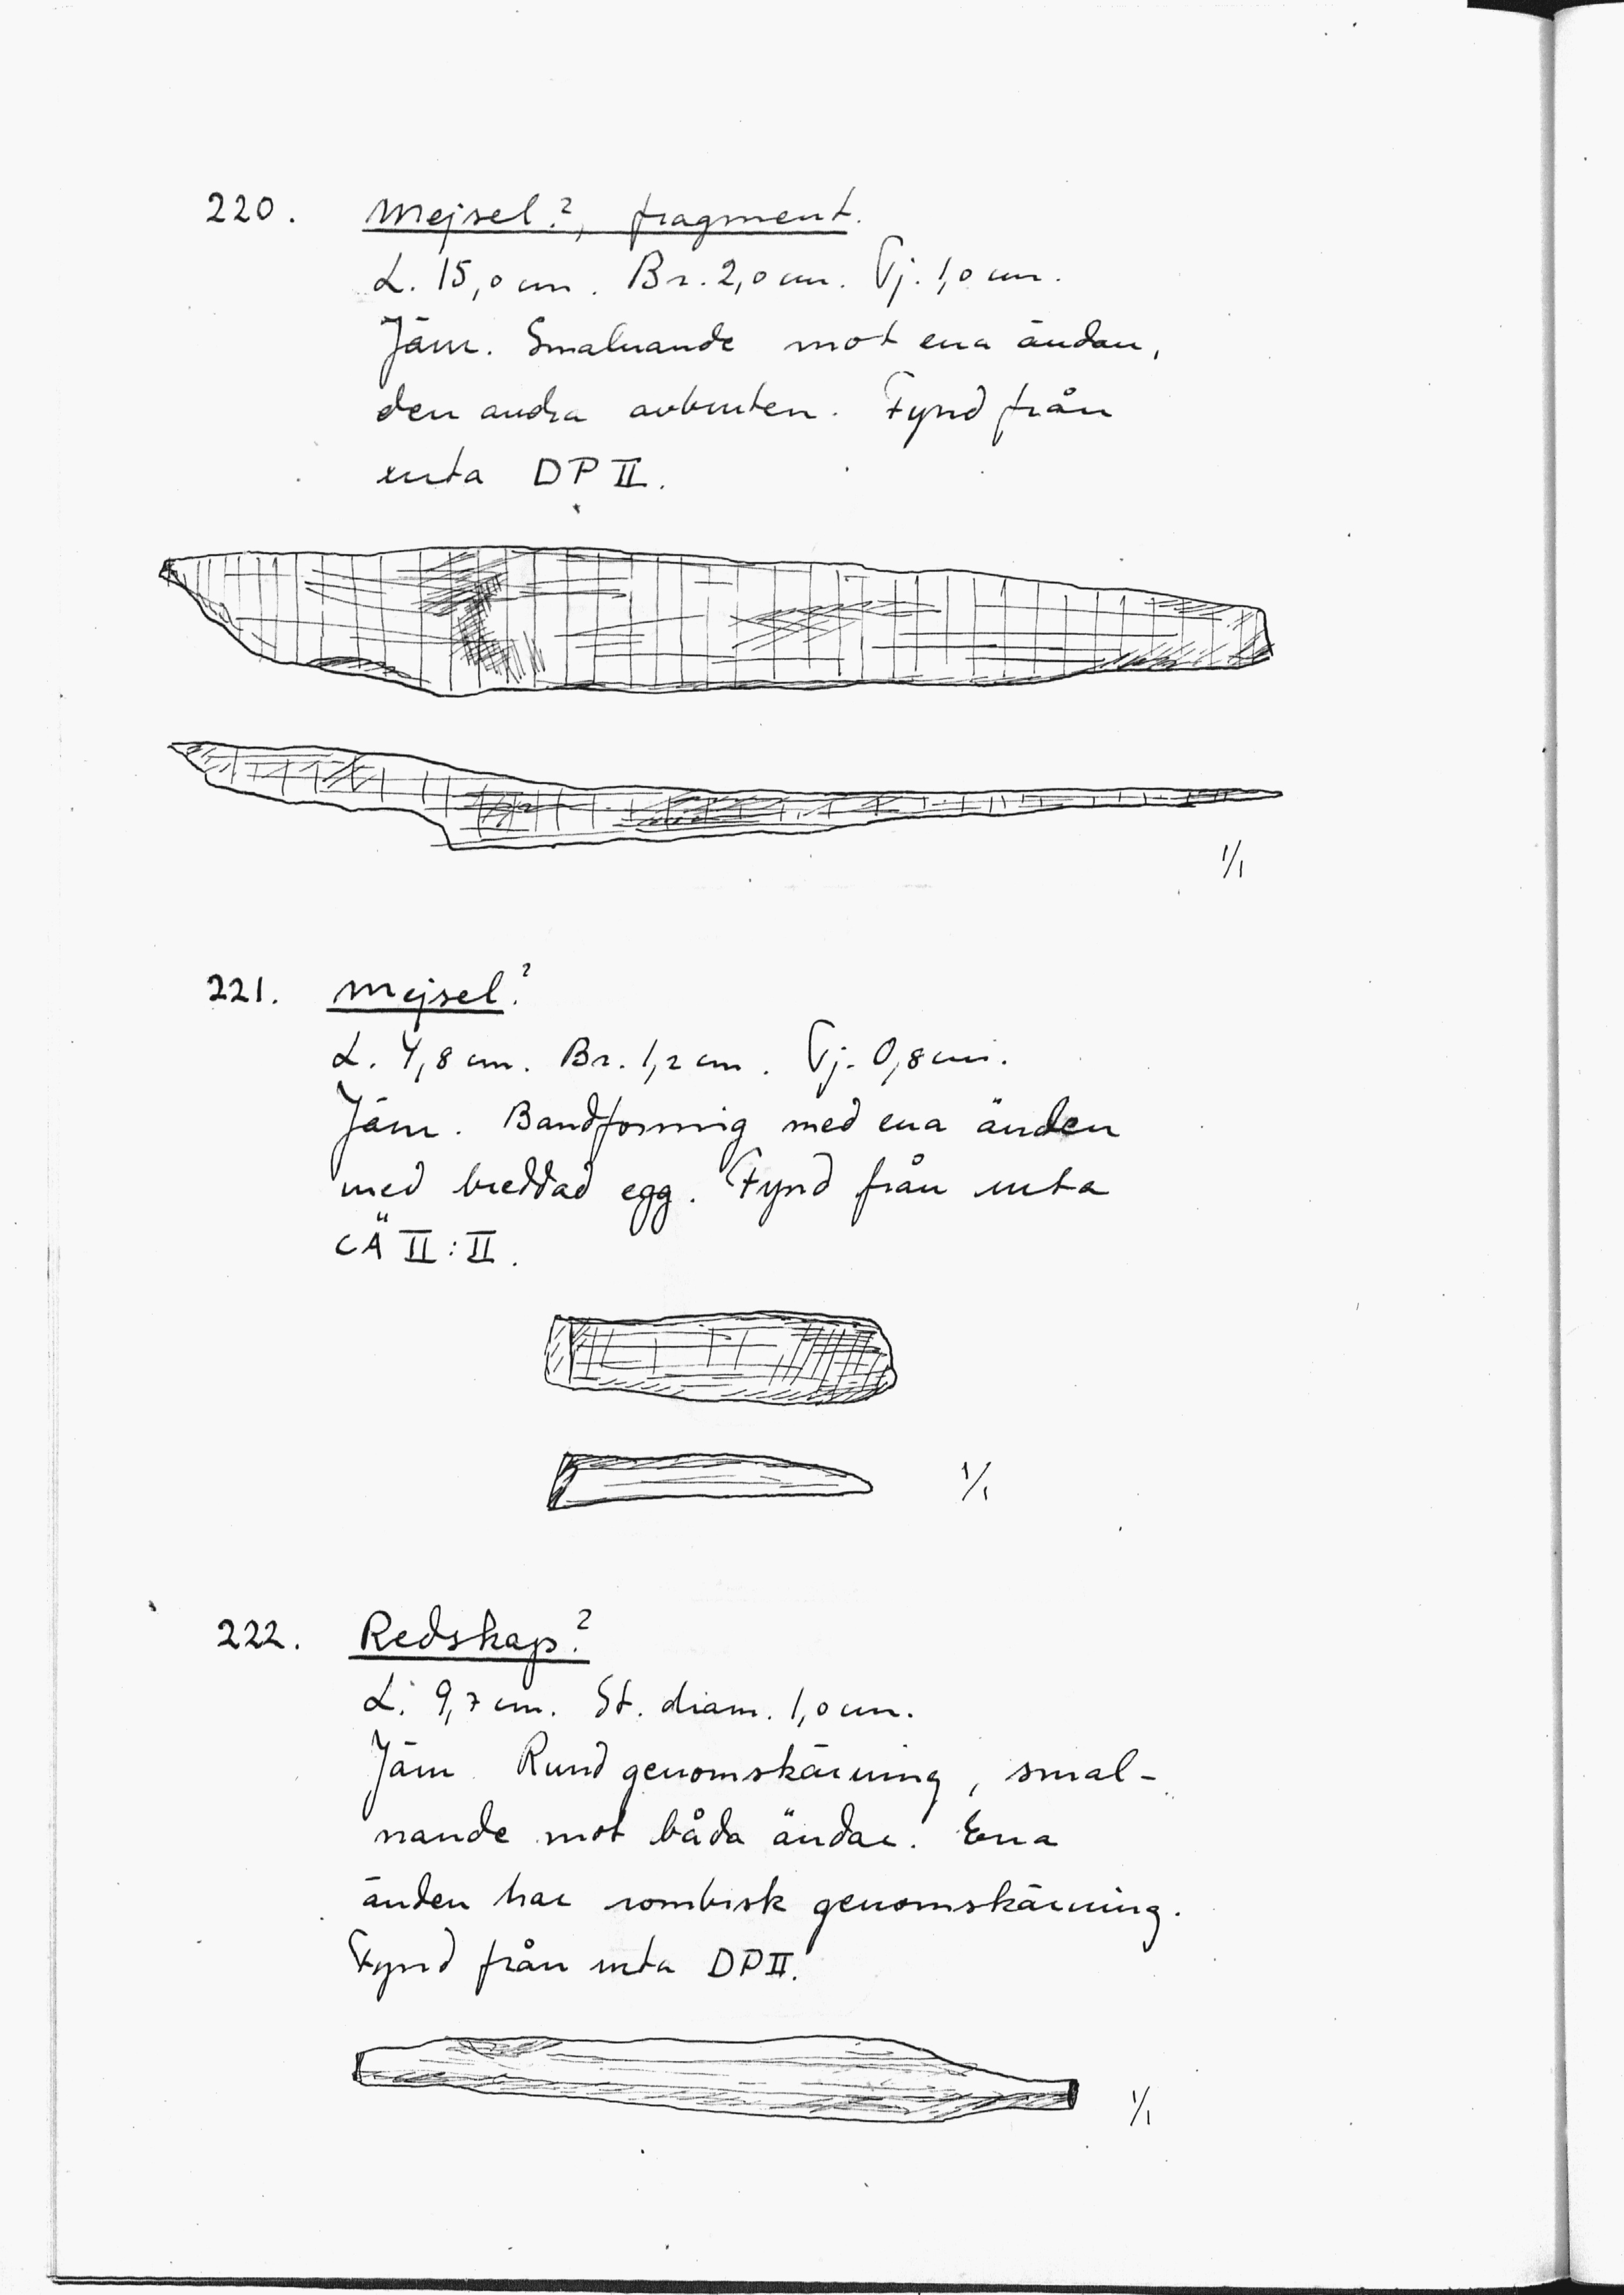 220. Mejsel?, fragment.
L. 15,0 cm. Br. 2,0 cm. Tj. 1,0 cm.
Järn. Smalnande mot ena ändan,
den andra avbruten. Fynd från
ruta DP II.
1/1
221. Mejsel?
L. 4,8 cm. Br. 1,2 cm. Tj. 0,8 cm.
Järn. Bandformig med ena änden
med breddad egg. Fynd från ruta
CÄ II:II.
1/1
222. Redskap?
L. 9,7 cm. St. diam. 1,0 cm.
Järn. Rund genomskärning, smal-
nande mot båda ändar. Ena
änden har rombisk genomskärning.
Fynd från ruta DP II.
1/1